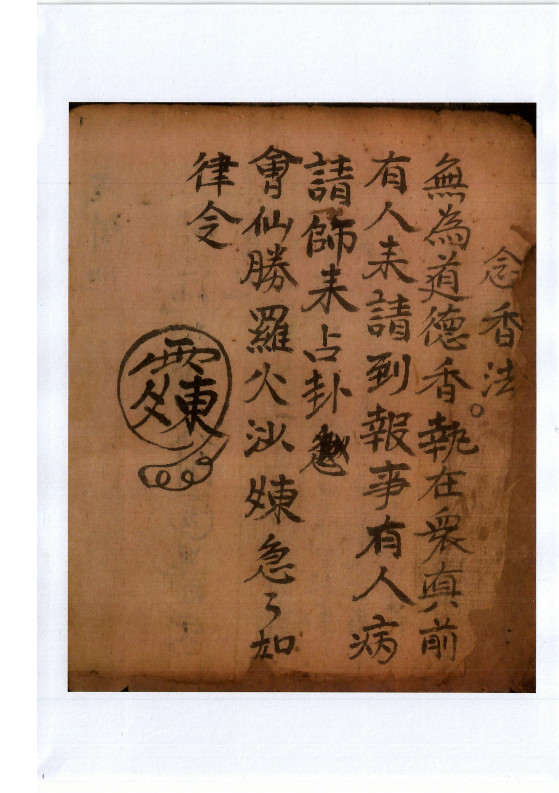 念香法
無為道德香。執在衆真前
有人来請到報事有人病
請師来占卦
會仙勝羅火沙㛔急々如
律令